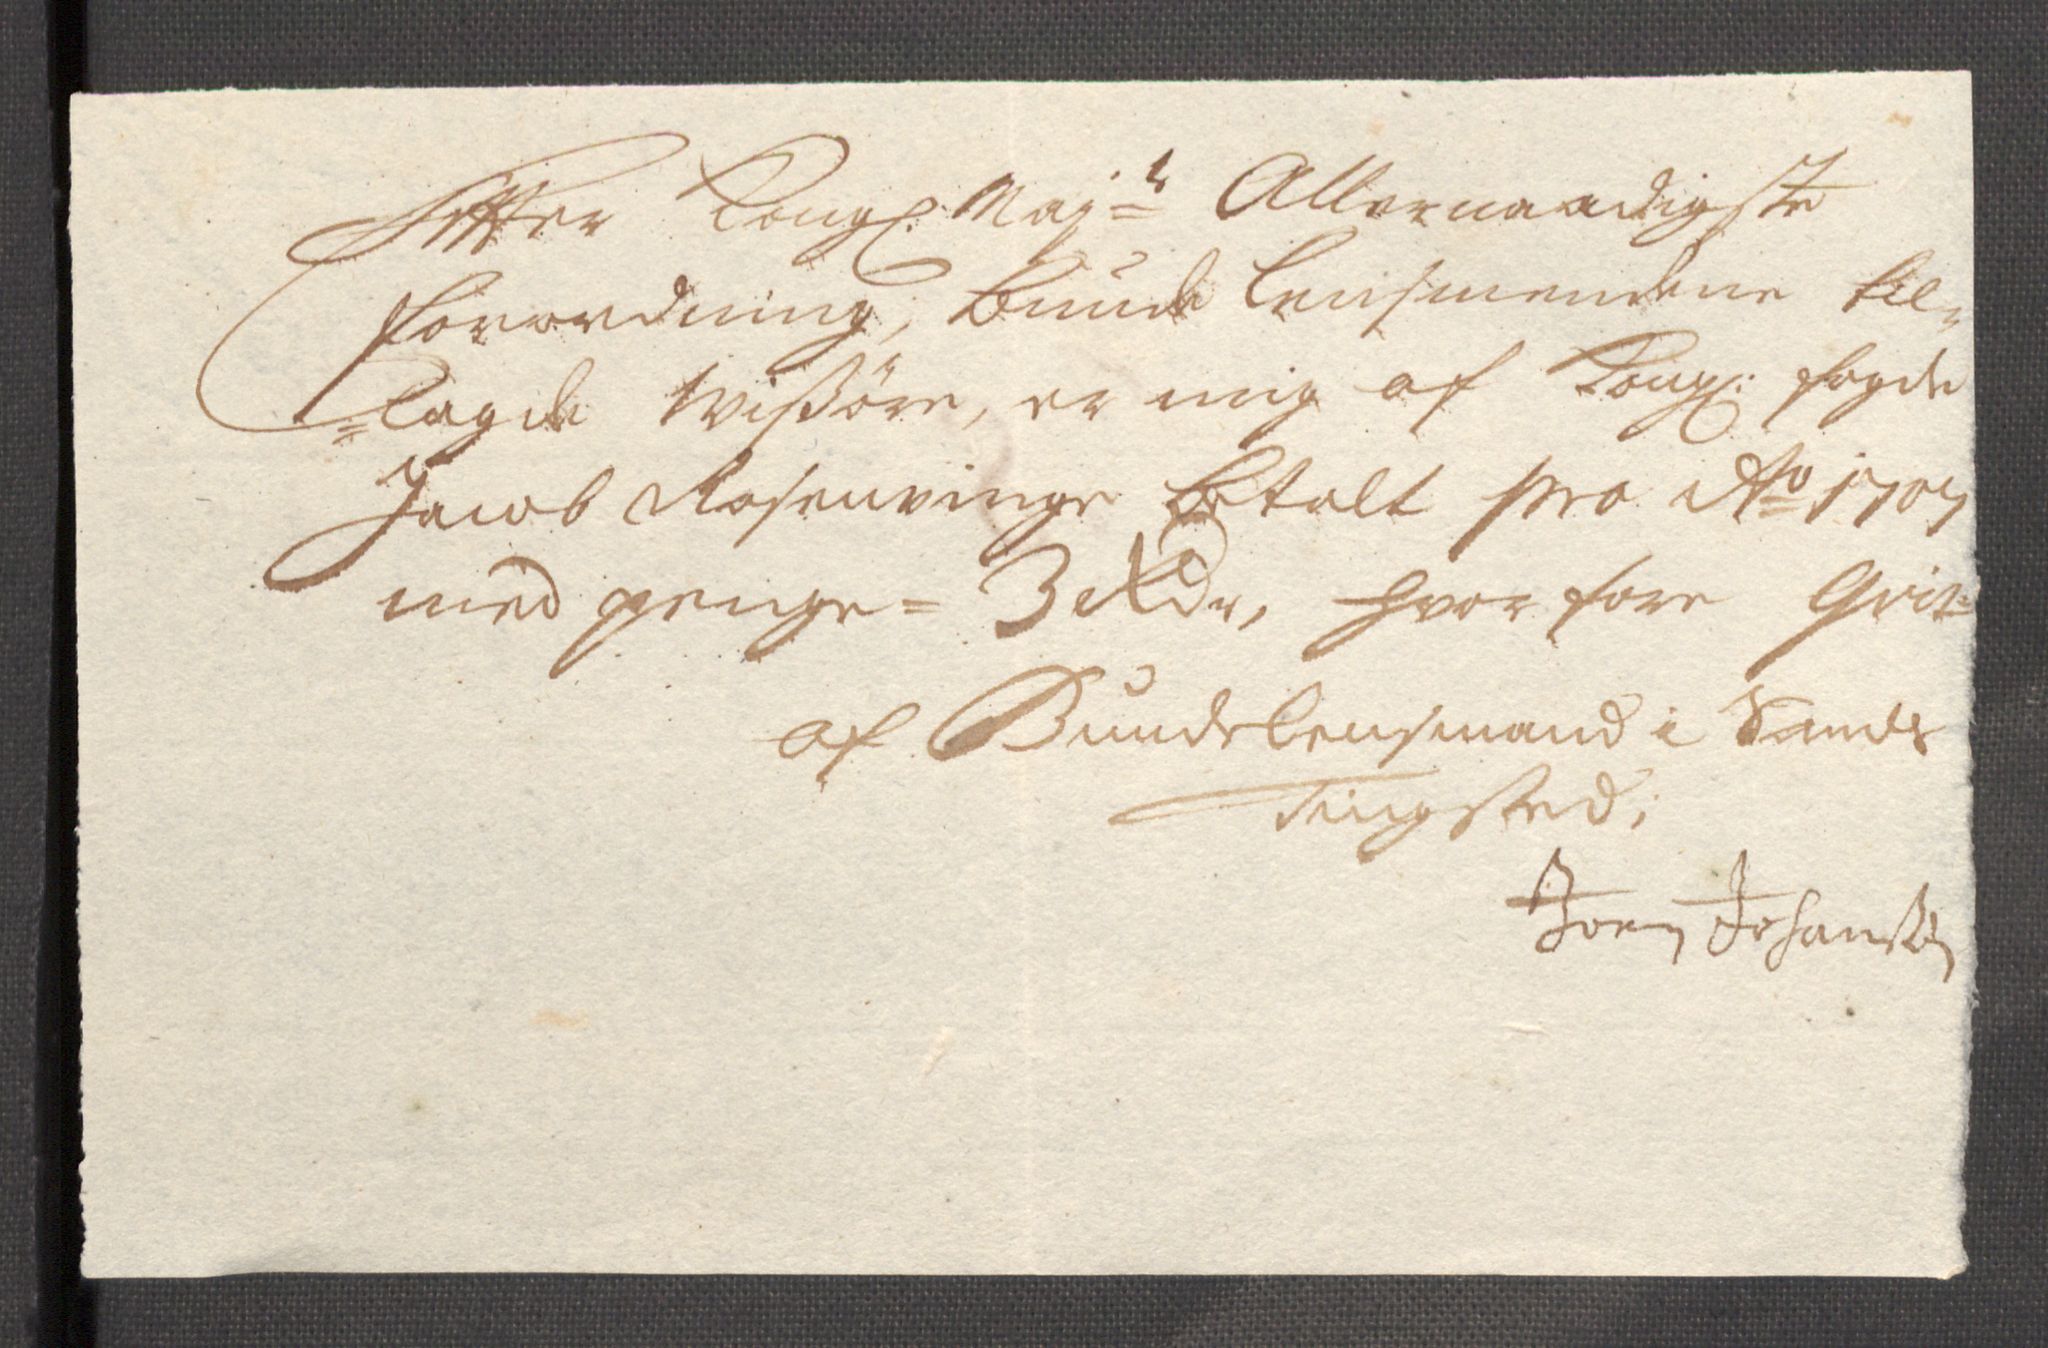 Effter Kongl. Maj:ts Allernaadigste
forordning, Bunde Lensmendene til-
=lagde Wißöre, er mig af Kongl: fogde
Jacob Rosenvinge betalt pro Ao 1707
med penge = 3 Rdr, hvorfore Qvit:
af Bunde Lensmand i Sands
Tingsted;
Joen Johanßen